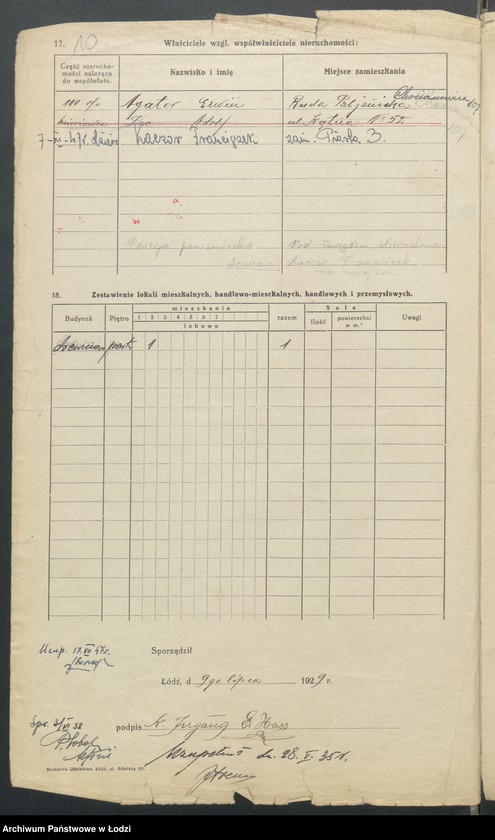 17. 10 Właściciele wzgl. współwłaściciele nieruchomości:
Część nierucho-
mości należąca
do współwłaśc.
Nazwisko i imię
Miejsce zamieszkania
100 % Agater Erwin Ruda Pabjanicka Chocianowice 107
Adolf ul. Kątna № 52
107
7-XI-47r. dzierż. Kaczor Franciszek zam. Piasta 3.
Kaczor Franciszek
18. Zestawienie lokali mieszkalnych, handlowo-mieszkalnych, handlowych i przemysłowych.
Budynek Piętro mieszkania razem Sale Uwagi
1 2 3 4 5 6 7
izbowe
ilość powierzchni w m.²
drewniany part. 1 1
Uzup. 17.VII 47r.
Sporządził
Łódź, d 9go lipca 1929 r.
Spr. 3/VI 38
podpis K. Irrgang E. Hass
Uzupełnił dn. 28. V. 35 r.
Drukarnia Udziałowa, Łódź, ul. Gdańska 101.
Archiwum Państwowe w Łodzi